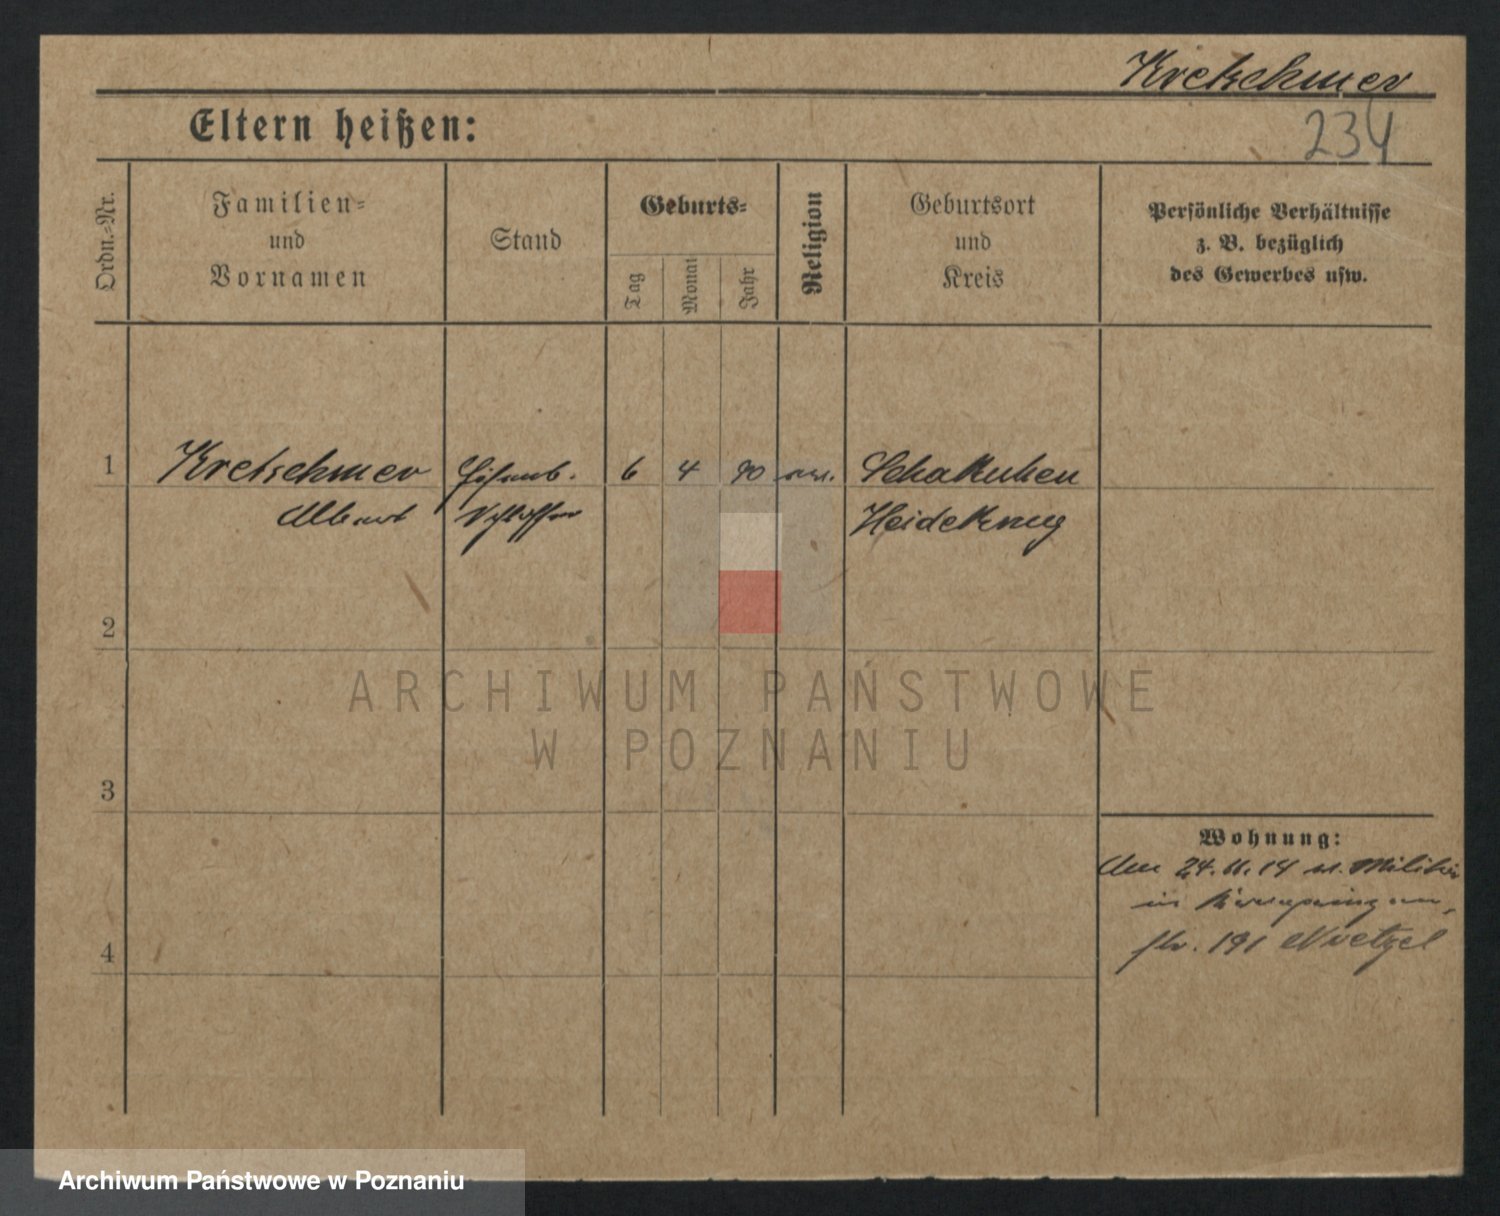 Kretschmer
Eltern heißen:
234
Ordn.-Nr.
Familien-
und
Vornamen
Stand
Geburts-
Tag
Monat
Jahr
Religion
Geburtsort
und
Kreis
Persönliche Verhältnisse
z. B. bezüglich
des Gewerbes usw.
1
Kretschmer
Albert
Schlosser
6
4
90
Schakuhen
Heidekrug
2
3
4
Wohnung:
Am 24.11.14 z. Militär
in
str. 191
ARCHIWUM PAŃSTWOWE
W POZNANIU
Archiwum Państwowe w Poznaniu